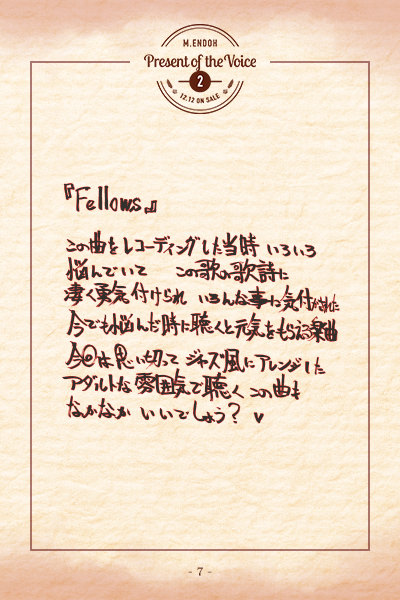 M.ENDOH
Present of the Voice
2
12.12 ON SALE
『Fellows』
この曲をレコーディングした当時 いろいろ
悩んでいて この歌の歌詩に
凄く勇気付けられ いろんな事に気付かされた
今でも悩んだ時に聴くと元気をもらえる楽曲
今回は思い切って ジャズ風にアレンジした
アダルトな雰囲気で聴く この曲も
なかなか いいでしょう? ♥
- 7 -